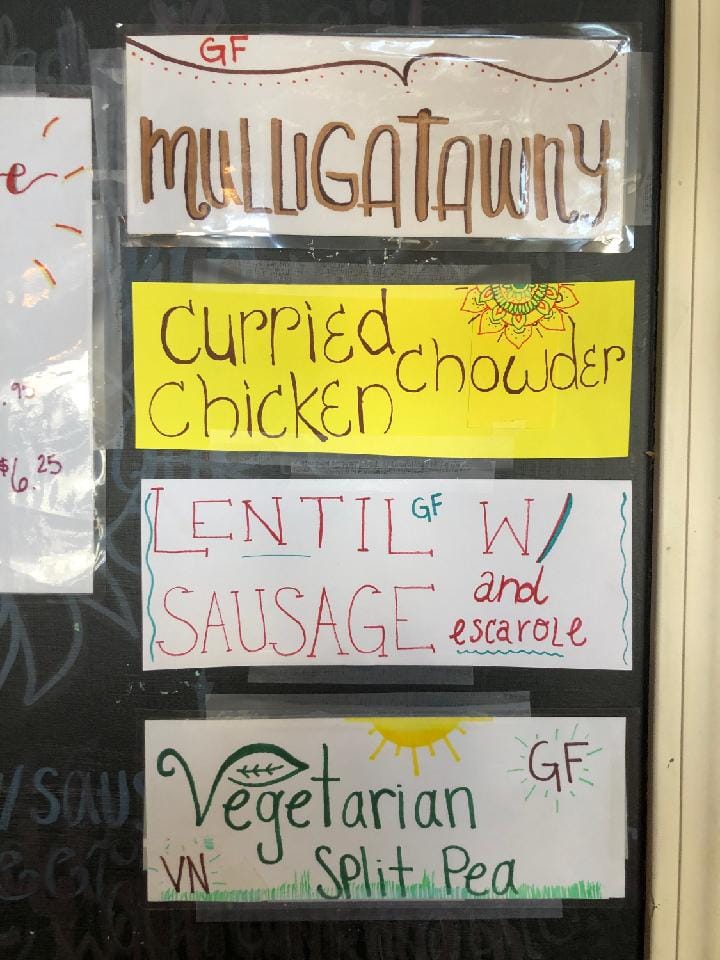 GF
MULLIGATAWNY
Curried
Chicken Chowder
LENTIL GF W/
SAUSAGE and
escarole
Vegetarian GF
VN Split Pea
e
.95
$6.25